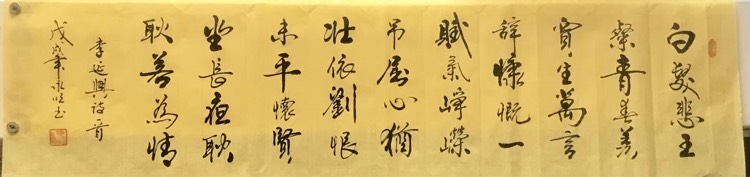 白髮悲王
粲青春羨
賈生萬言
辭慷慨一
賦氣崢嶸
吊屈心猶
壯依劉恨
未平懷賢
坐長夜耿
耿若為情
李延興詩首
戊戌年永书